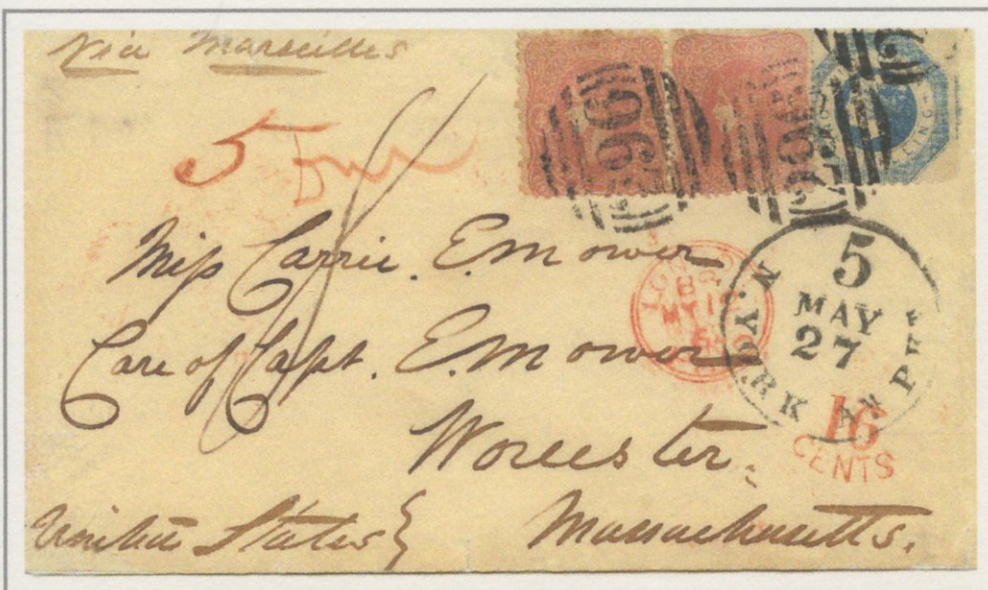 via Marseilles
5
Miss Carrie. E. Mower
Care of Capt. E. Mower
Worcester.
United States } Massachusetts.
96
LONDON
MY
5
MAY
27
N. YORK AM PKT
16
CENTS